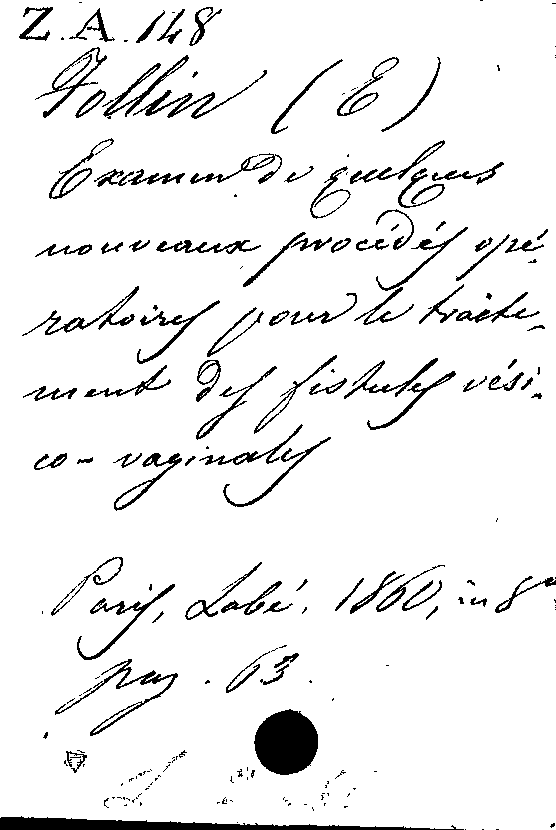 Z.A. 148
Follin (E)
Examen de quelques
nouveaux procédés opé-
ratoires pour le traite-
ment des fistules vési-
co-vaginales
Paris, Labé. 1860, in 8°
pag. 63.